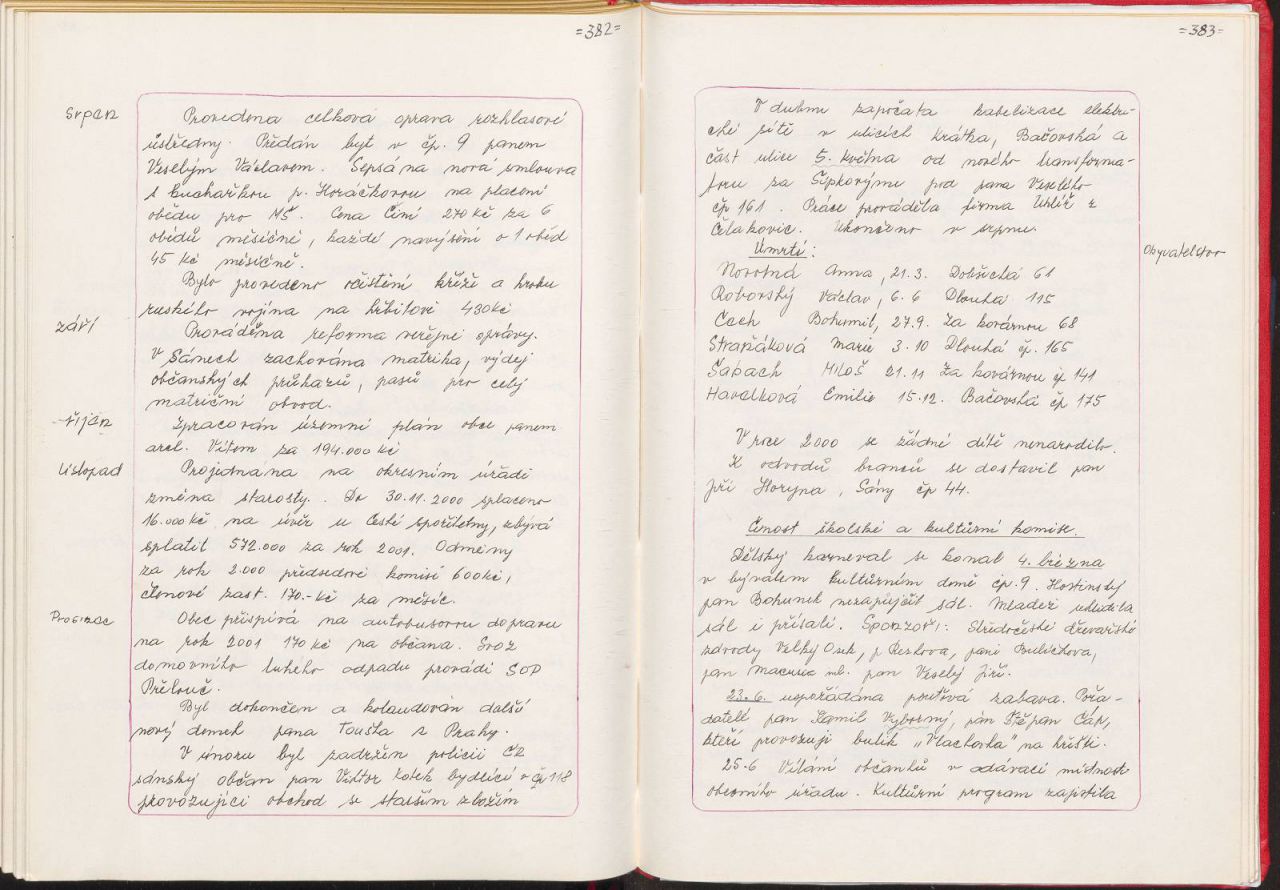 =382=
Srpen
Provedena celková oprava rozhlasové
ústředny. Předán byt v čp. 9 panem
Veselým Václavem. Sepsána nová smlouva
s kuchařkou p. Horáčkovou na placení
obědu pro MŠ. Cena činí 270 kč za 6
obědů měsíčně, každé navýšení o 1 oběd
45 Kč měsíčně.
Bylo provedeno očistění kříže a hrobu
ruského vojína na hřbitově 430kč
září
Prováděna reforma veřejné správy.
V Sánech zachována matrika, výdej
občanských průkazů, pasů pro celý
matriční obvod.
říjen
Zpracován územní plán obce panem
arch. Vítem za 194.000 kč
listopad
Projednána na okresním úřadi
změna starosty. Do 30.11.2000 splaceno
16.000 kč na úvěr u České spořitelny, zbývá
splatit 572.000 za rok 2001. Odměny
za rok 2.000 předsedové komisí 600kč,
členové zast. 170.-kč za měsíc.
Prosinec
Obec přispívá na autobusovou dopravu
na rok 2001 170 kč na občana. Svoz
domovního tuhého odpadu provádí SOP
Přelouč.
Byl dokončen a kolaudován další
nový domek pana Touška z Prahy.
V únoru byl zadržen policií ČR
sánský občan pan Viktor Kotek bydlící v čp 118
provozující obchod se starším zbožím
=383=
V dubnu započata kabelizace elektri-
cké sítě v ulicích krátká, Bačovská a
část ulice 5. května od nového transforma-
toru za Šípkovými pod pana Veselého
čp 161. Práce prováděla firma Uhlíř z
Čelakovic. Ukončeno v srpnu.
Obyvatelstvo
Úmrtí:
Novotná Anna, 21.3. Dobšická 61
Roborský Václav, 6.6 Dlouhá 115
Čech Bohumil, 27.9. Za kovárnou 68
Strapáková Marie 3.10 Dlouhá čp. 165
Šabach Miloš 21.11 Za kovárnou čp 141
Havelková Emilie 15.12. Bačovská čp 175
V roce 2000 se žádné dítě nenarodilo.
K odvodů branců se dostavil pan
Jiří Horyna, Sány čp 44.
Činost školské a kultůrní komise.
Dětský karneval se konal 4. března
v bývalém kultůrním domě čp. 9. Hostinský
pan Bohunek nezapůjčil sál. Mládež uklidila
sál i přísálí. Sponzoři: Středočeské dřevařské
závody Velký Osek, p. Peslova, paní Bulíčkova,
pan ml. pan Veselý Jiří.
23.6. uspořádána pouťová zabava. Pořa-
datelé pan Kamil Výborný, pán Štěpan Cáp,
kteří provozují butik „Vlachovka" na hřišti.
25.6 Vítání občánků v obřadací místnosti
obecního úřadu. Kultůrní program zajistila